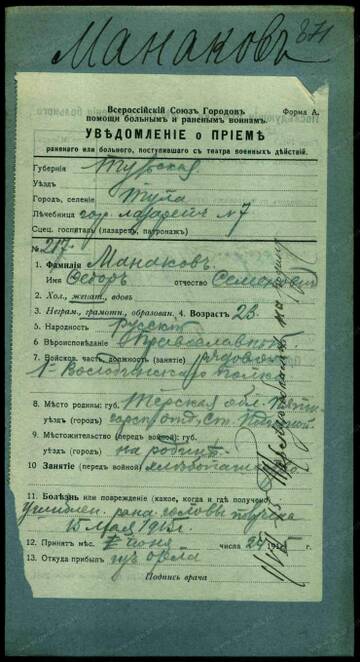 Манаковъ 871
Всероссійскій Союзъ Городовъ
помощи больнымъ и раненымъ воинамъ.
Форма А.
УВѢДОМЛЕНІЕ о ПРІЕМѢ
раненаго или больного, поступившаго съ театра военныхъ дѣйствій.
Губернія Тульская
Уѣздъ
Городъ, селеніе Тула
Лѣчебница гор. лазаретъ № 7
Спец. госпиталь (лазаретъ, патронажъ)
№ 217
1. Фамилія Манаковъ
Имя Федоръ отчество Семенович
2. Хол., женат., вдовъ
3. Неграм., грамотн., образован. 4. Возрастъ 23.
5. Народность русск
6. Вѣроисповѣданіе Православный
7. Войсков. часть, должность (занятіе) рядовой
1-
8. Мѣсто родины: губ. Терская обл.
уѣздъ (город) отд. ст.
9. Мѣстожительство (передъ войной): губ.
уѣздъ (город) на родинѣ
10 Занятіе (передъ войной)
11. Болѣзнь или поврежденіе (какое, когда и гдѣ получено)
рана головы
15 мая 1915 г.
12. Принятъ мѣс. іюня числа 24 1915
13. Откуда прибылъ изъ Орла
Подпись врача